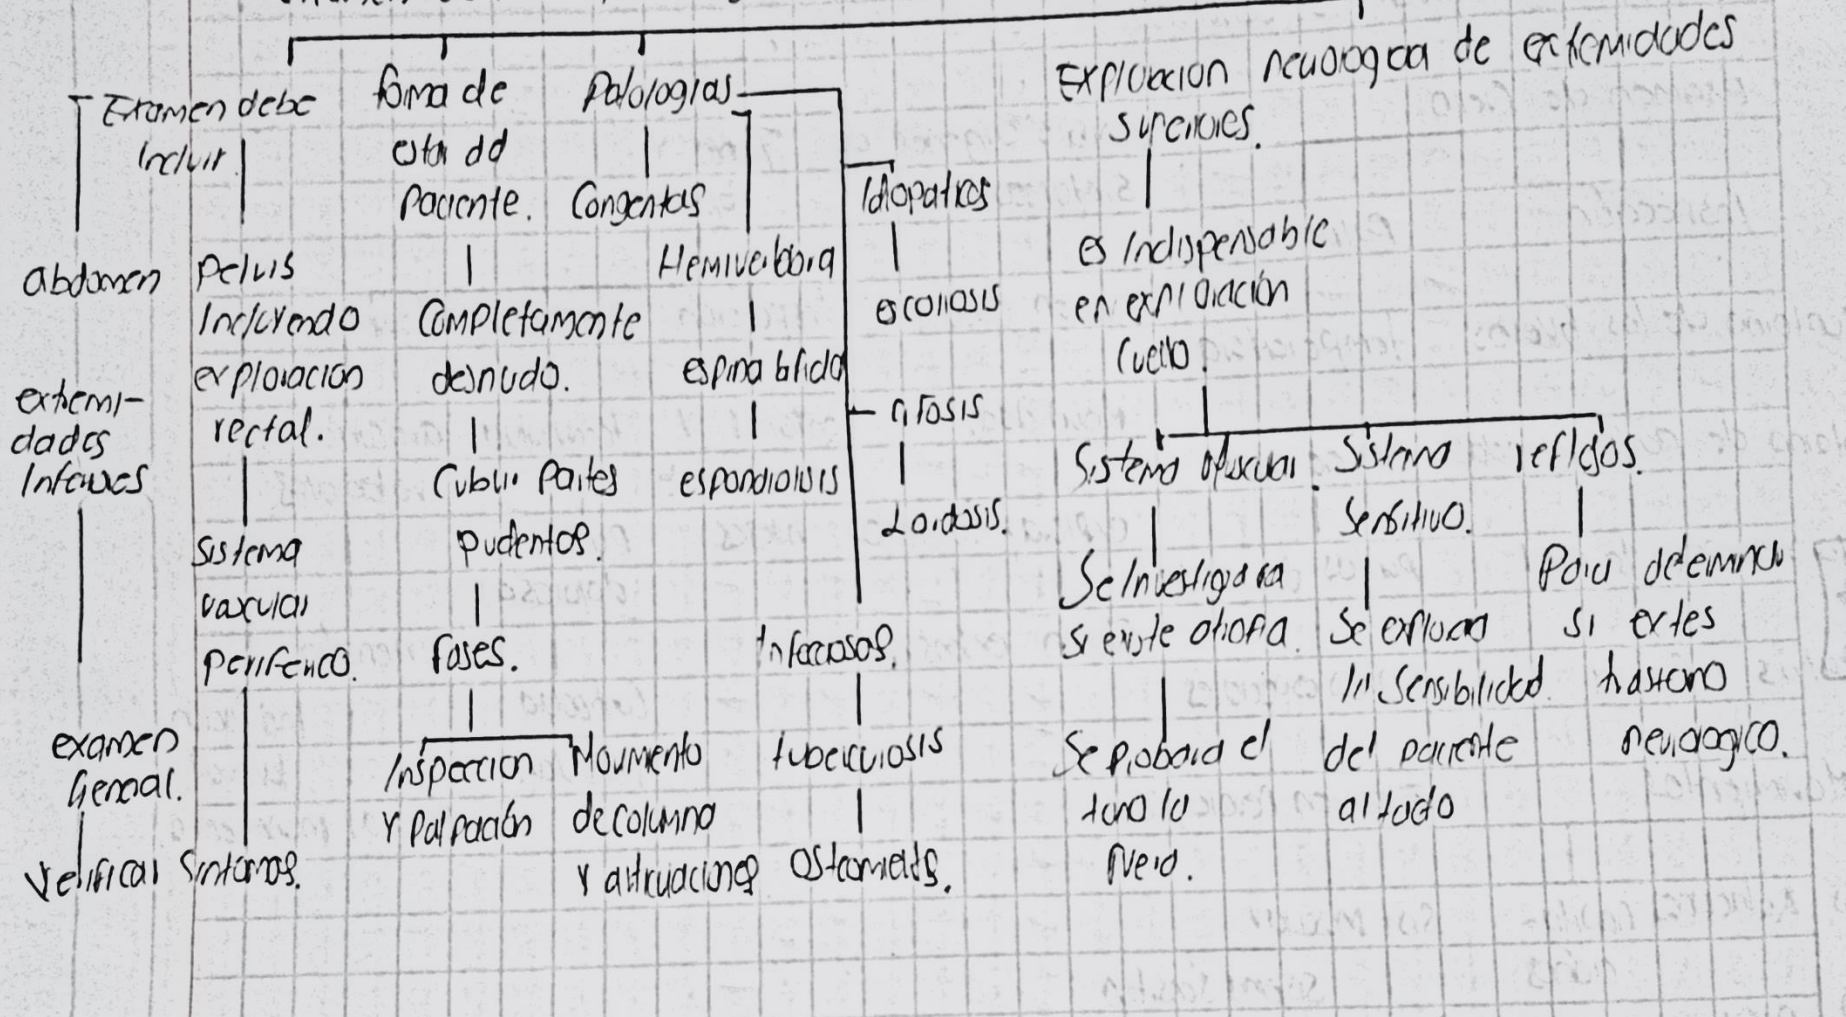 Examen debe
incluir
abdomen
extremi-
dades
Inferiores
examen
General.
Verificar síntomas.
Pelvis
Incluyendo
exploracion
rectal.
Sistema
vascular
Periferico.
forma de
estar del
Paciente.
Completamente
desnudo.
Cubrir Partes
pudentos.
fases.
Inspeccion
Y Palpación
Movimento
de columna
Y articulaciones
Patologias
Congenitas
Hemivertebra
espina bifida
espondiolisis
Idiopaticos
escoliosis
cifosis
Lordosis.
Infecciosos.
tuberculosis
Exploracion neurologica de extremidades
superiores.
es Indispensable
en exploración
Cuello.
Sistema Muscular.
Se Investigara
si existe atrofia.
Se probara el
tono la
Sistema
Sensitivo.
Se explora
la sensibilidad
del paciente
al tacto
reflejos.
Para determinar
si
trastorno
neurologico.